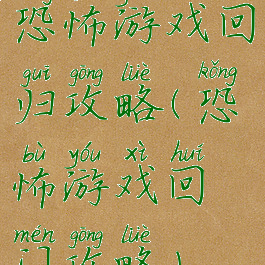 恐怖游戏回
guī gōng lüè kǒng
归攻略(恐
bù yóu xì huí
怖游戏回
mén gōng lüè
门攻略)